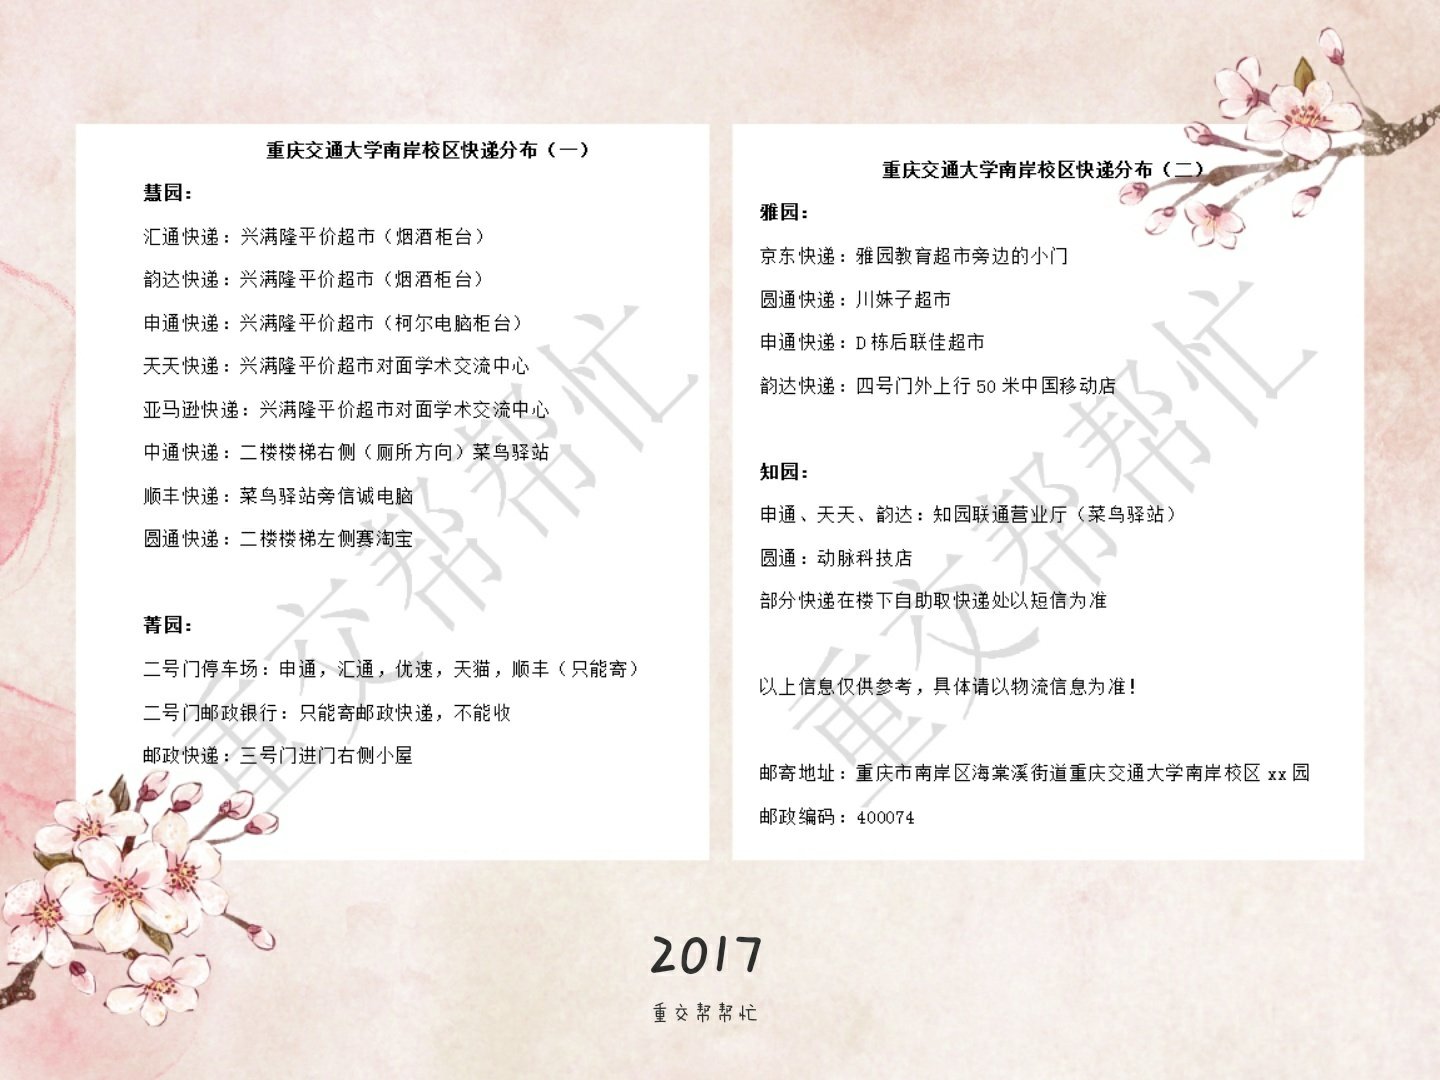 重庆交通大学南岸校区快递分布（一）
慧园：
汇通快递：兴满隆平价超市（烟酒柜台）
韵达快递：兴满隆平价超市（烟酒柜台）
申通快递：兴满隆平价超市（柯尔电脑柜台）
天天快递：兴满隆平价超市对面学术交流中心
亚马逊快递：兴满隆平价超市对面学术交流中心
中通快递：二楼楼梯右侧（厕所方向）菜鸟驿站
顺丰快递：菜鸟驿站旁信诚电脑
圆通快递：二楼楼梯左侧赛淘宝
菁园：
二号门停车场：申通，汇通，优速，天猫，顺丰（只能寄）
二号门邮政银行：只能寄邮政快递，不能收
邮政快递：三号门进门右侧小屋
重交帮帮忙
重庆交通大学南岸校区快递分布（二）
雅园：
京东快递：雅园教育超市旁边的小门
圆通快递：川妹子超市
申通快递：D栋后联佳超市
韵达快递：四号门外上行50米中国移动店
知园：
申通、天天、韵达：知园联通营业厅（菜鸟驿站）
圆通：动脉科技店
部分快递在楼下自助取快递处以短信为准
以上信息仅供参考，具体请以物流信息为准！
邮寄地址：重庆市南岸区海棠溪街道重庆交通大学南岸校区xx园
邮政编码：400074
重交帮帮忙
2017
重交帮帮忙